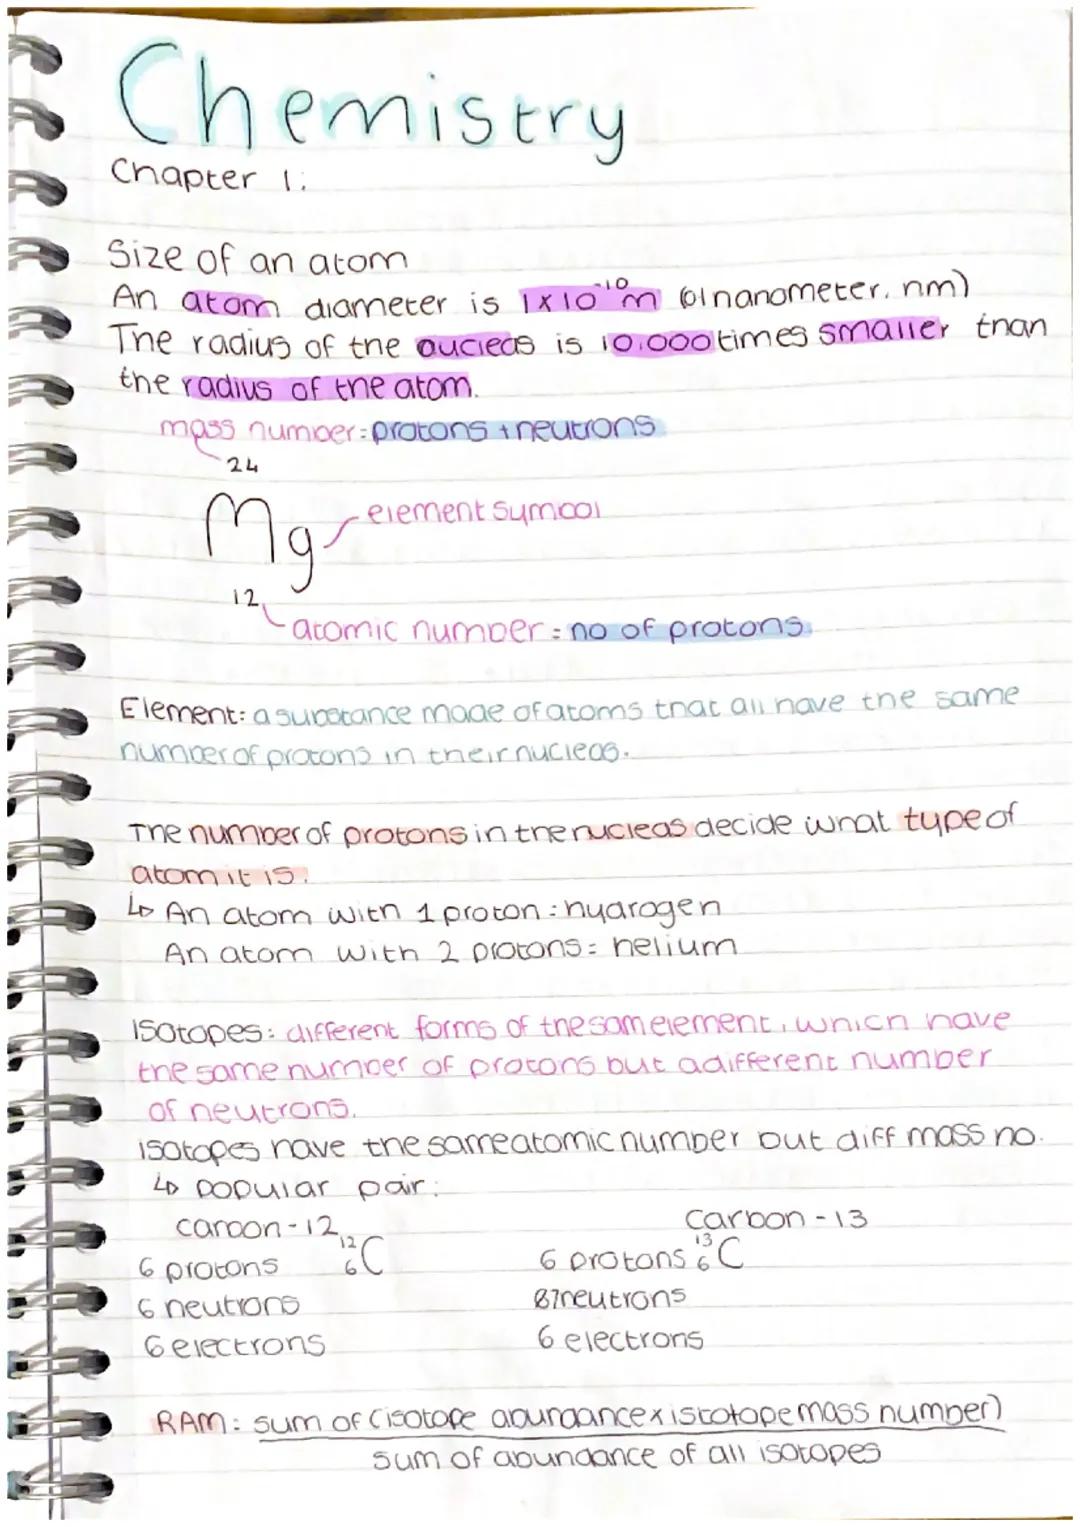 Chemistry
Chapter 1:
Size of an atom
An atom diameter is 1×10⁻¹⁰m (01nanometer, nm)
The radius of the nucleas is 10,000 times smaller than
the radius of the atom.
mass number = protons + neutrons
24
Mg element symbol
12
atomic number = no of protons.
Element: a substance made of atoms that all have the same
number of protons in their nucleas.
The number of protons in the nucleas decide what type of
atom it is.
↳ An atom with 1 proton = hydrogen
An atom with 2 protons = helium
Isotopes: different forms of the sam element, which have
the same number of protons but a different number
of neutrons.
isotopes have the same atomic number but diff mass no.
↳ popular pair:
carbon-12 Carbon-13
6 protons ¹²₆C 6 protons ¹³₆C
6 neutrons 7 neutrons
6 electrons 6 electrons
RAM: sum of (isotope abundance x istotope mass number)
sum of abundance of all isotopes